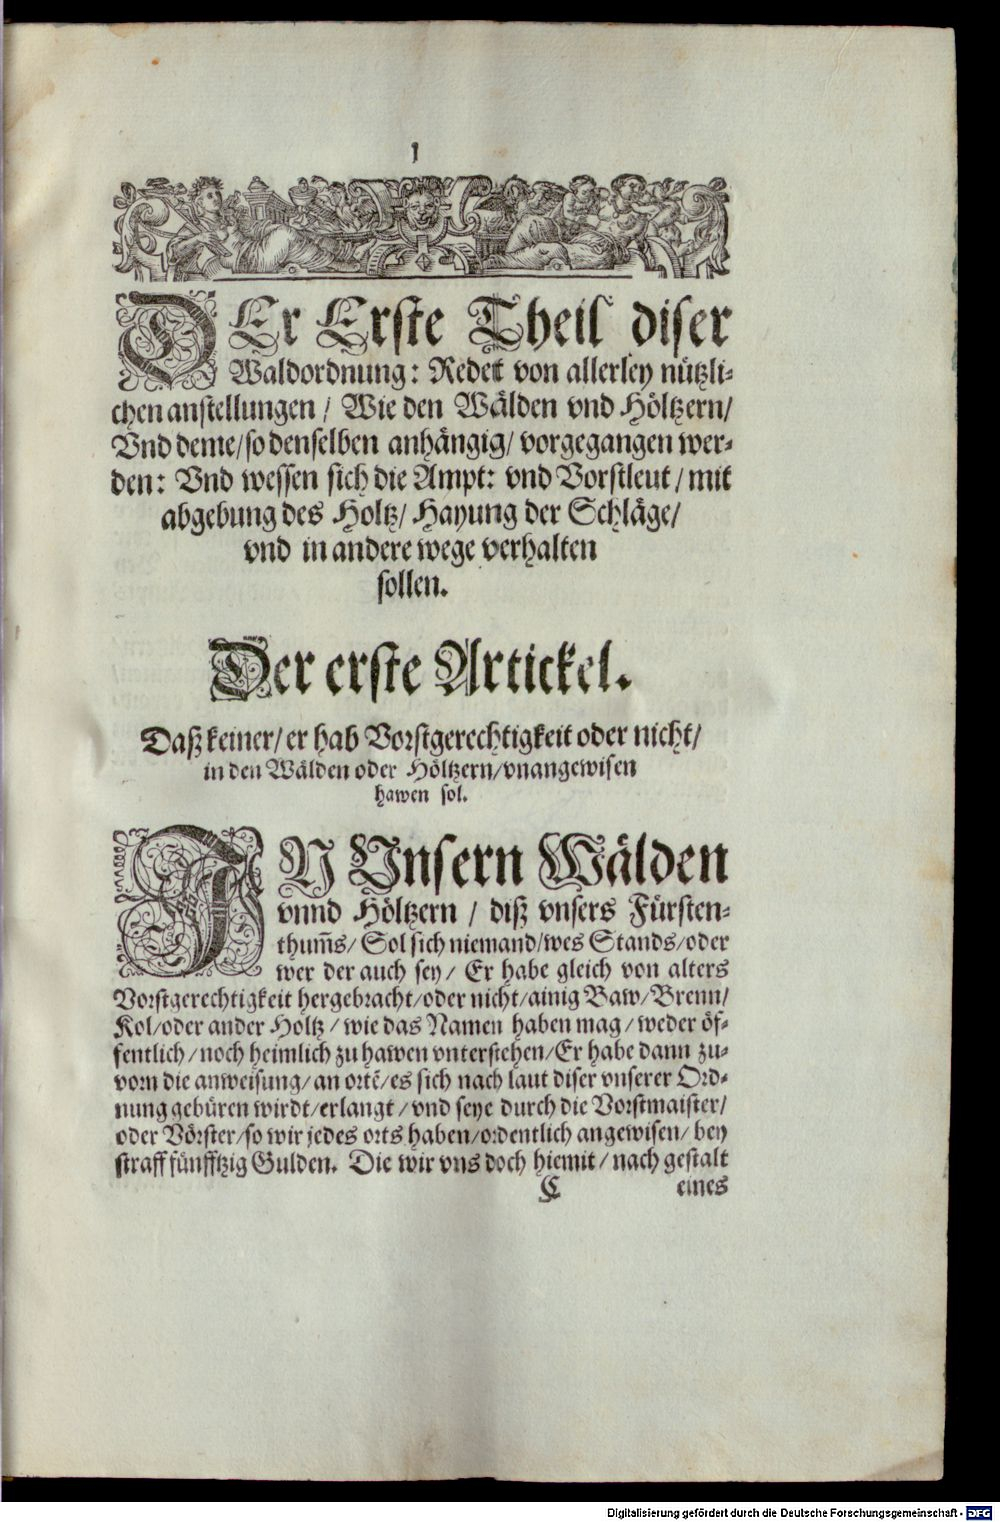 1
DEr Erste Theil diser
Waldordnung: Redet von allerley nützli-
chen anstellungen / Wie den Wälden vnd Höltzern/
Vnd deme/so denselben anhängig/ vorgegangen wer-
den: Vnd wessen sich die Ampt: vnd Vorstleut / mit
abgebung des Holtz/ Hayung der Schläge/
vnd in andere wege verhalten
sollen.
Der erste Artickel.
Daß keiner/ er hab Vorstgerechtigkeit oder nicht/
in den Wälden oder Höltzern/vnangewisen
hawen sol.
IN Vnsern Wälden
vnnd Höltzern / diß vnsers Fürsten-
thum̃s/ Sol sich niemand/wes Stands/oder
wer der auch sey/ Er habe gleich von alters
Vorstgerechtigkeit hergebracht/oder nicht/ainig Baw/Brenn/
Kol/oder ander Holtz / wie das Namen haben mag / weder öf-
fentlich/noch heimlich zu hawen vnterstehen/Er habe dann zu-
vorn die anweisung/an ortẽ/es sich nach laut diser vnserer Ord-
nung gebüren wirdt/erlangt / vnd seye durch die Vorstmaister/
oder Vörster/so wir jedes orts haben/ordentlich angewisen/ bey
straff fünfftzig Gulden. Die wir vns doch hiemit/ nach gestalt
C eines
Digitalisierung gefördert durch die Deutsche Forschungsgemeinschaft - DFG